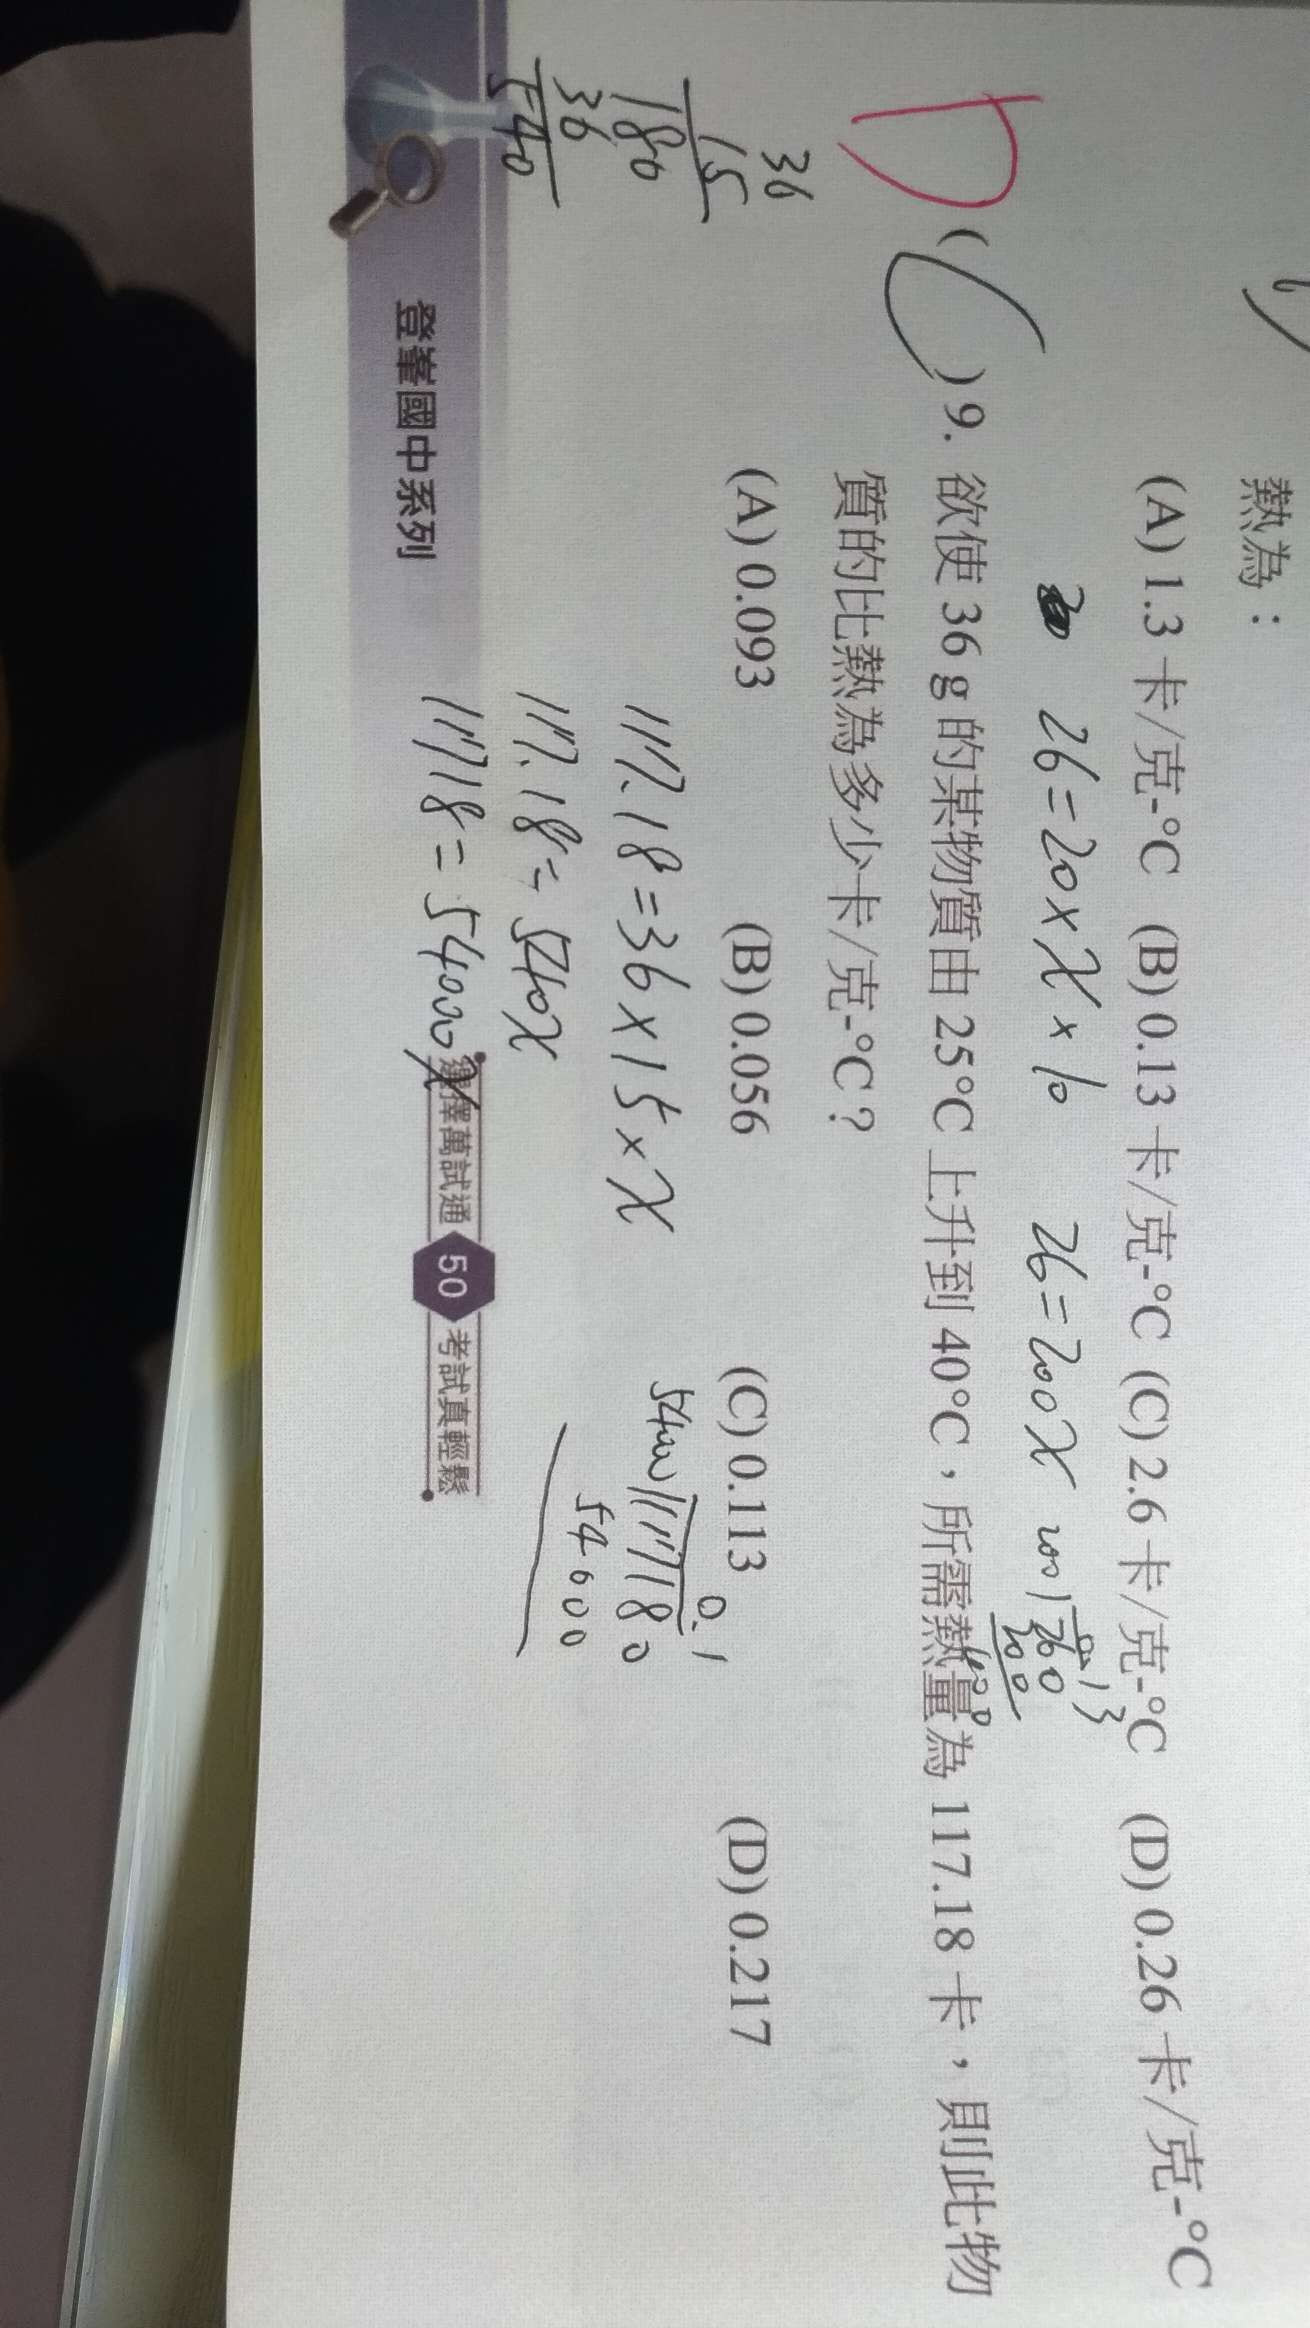 熱為：
(A) 1.3 卡/克-°C (B) 0.13 卡/克-°C (C) 2.6 卡/克-°C (D) 0.26 卡/克-°C
26=20×x×10 26=200x
0.13
200 260
200
D
( ) 9. 欲使 36 g 的某物質由 25°C 上升到 40°C，所需熱量為 117.18 卡，則此物
質的比熱為多少卡/克-°C？
(A) 0.093 (B) 0.056 (C) 0.113 (D) 0.217
36
15
180
36
540
117.18=36×15×x
117.18=540x
11718=54000x
0.1
54000 117180
54000
登峯國中系列
選擇萬試通 50 考試真輕鬆